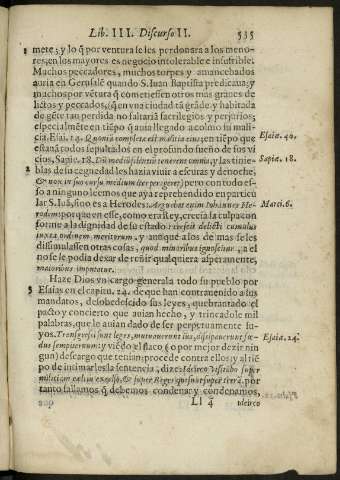 Lib. III. Discurso II. 535
mete; y lo q̃ por ventura se les perdonara a los meno-
res, en los mayores es negocio intolerable e insufrible.
Muchos peccadores, muchos torpes y amancebados
auria en Gerusalẽ quando S. Iuan Baptista predicaua; y
muchos por vẽtura q̃ cometiessen otros mas graues de
lictos y peccados, (q̃ en vna ciudad tã grãde y habitada
de gẽte tan perdida no faltariã sacrilegios y perjurios;
especialmẽte en tiẽpo q̃ auia llegado a colmo su mali-
cia, Esai. 40. Quoniã completa est malitia eius; en tiẽpo que
estauã todos sepultados en el profundo sueño de sus vi
cios, Sapiẽ. 18. Dũ mediũ silentiũ tenerent omnia, y las tinie-
blas de su ceguedad les hazia viuir a escuras y de noche,
& nox in suo cursu medium iter perageret) pero con todo es-
so a ninguno leemos que aya reprehendido en particu
lar S. Iuã, sino es a Herodes: Arguebat enim Iohannes He-
rodem; porque en esse, como era Rey, crecia la culpa con
forme a la dignidad de su estado: crescit delicti cumulus
iuxta ordinem meritorum, y aunque a los de mas se les
dissimulassen otras cosas, quod minoribus ignoscitur, a el
no se le podia dexar de reñir qualquiera asperamente,
maioribus imputatur.
Haze Dios vn cargo general a todo su pueblo por
Esaias en el capit. 24. de que han contrauenido a sus
mandatos, desobedescido sus leyes, quebrantado el
pacto y concierto que auian hecho, y trincadole mil
palabras, que le auian dado de ser perpetuamente su-
yos. Transgressi sunt leges, mutauerunt ius, dissipauerunt fœ-
dus sempiternum: y viẽdo el flaco (o por mejor dezir nin
gun) descargo que tenian; procede contra ellos; y al tiẽ
po de intimarles la sentencia, dize: Ideirco visitabo super
militiam cœli in excelso, & super Reges qui sunt super terrã. por
tanto fallamos q̃ debemos condenar y condenamos,
Ll 4 Ideirco
Esaiæ 40.
Sapiæ. 18.
Marci. 6.
Esaiæ. 24.